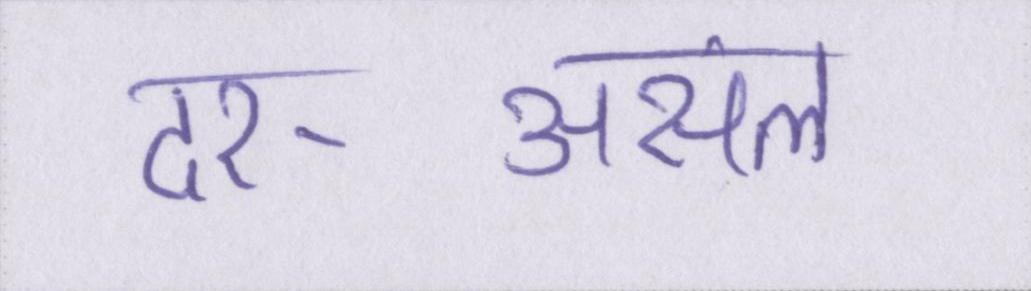 दर- असल